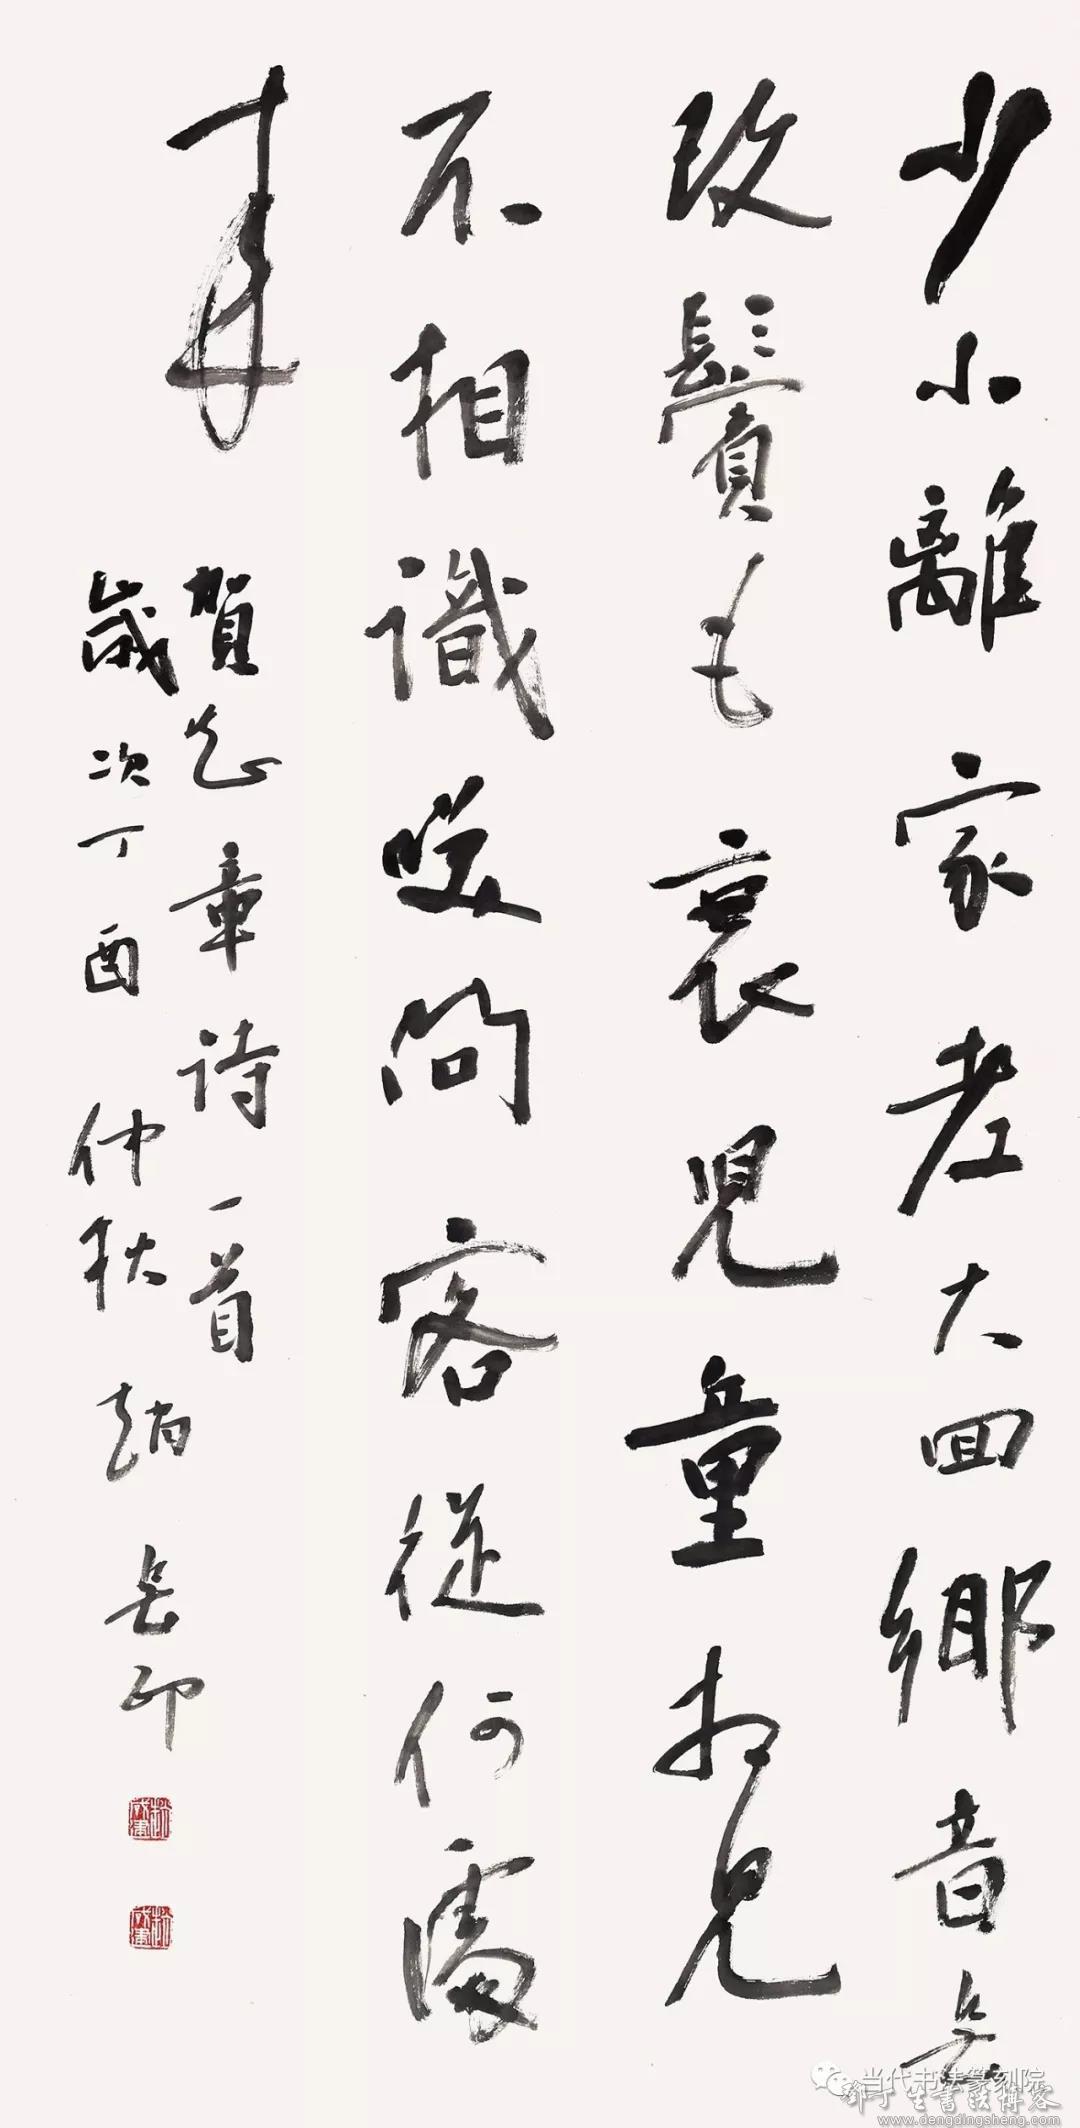 少小離家老大囬鄉音無
改鬢毛衰兒童相見
不相識咲問客從何處
来
賀知章詩一首
歲次丁酉仲秋趙
当代书法篆刻院
邓丁生書法博客
www.dengdingsheng.com